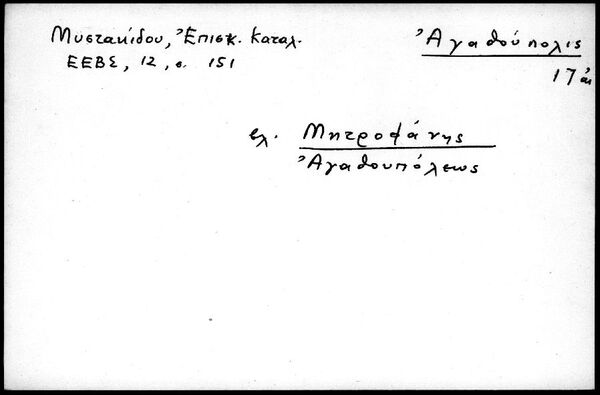 Μυστακίδου, Ἐπισκ. Καταλ.
ΕΕΒΣ, 12, σ. 151
Ἀγαθούπολις
17 αἰ
βλ. Μητροφάνης
Ἀγαθουπόλεως